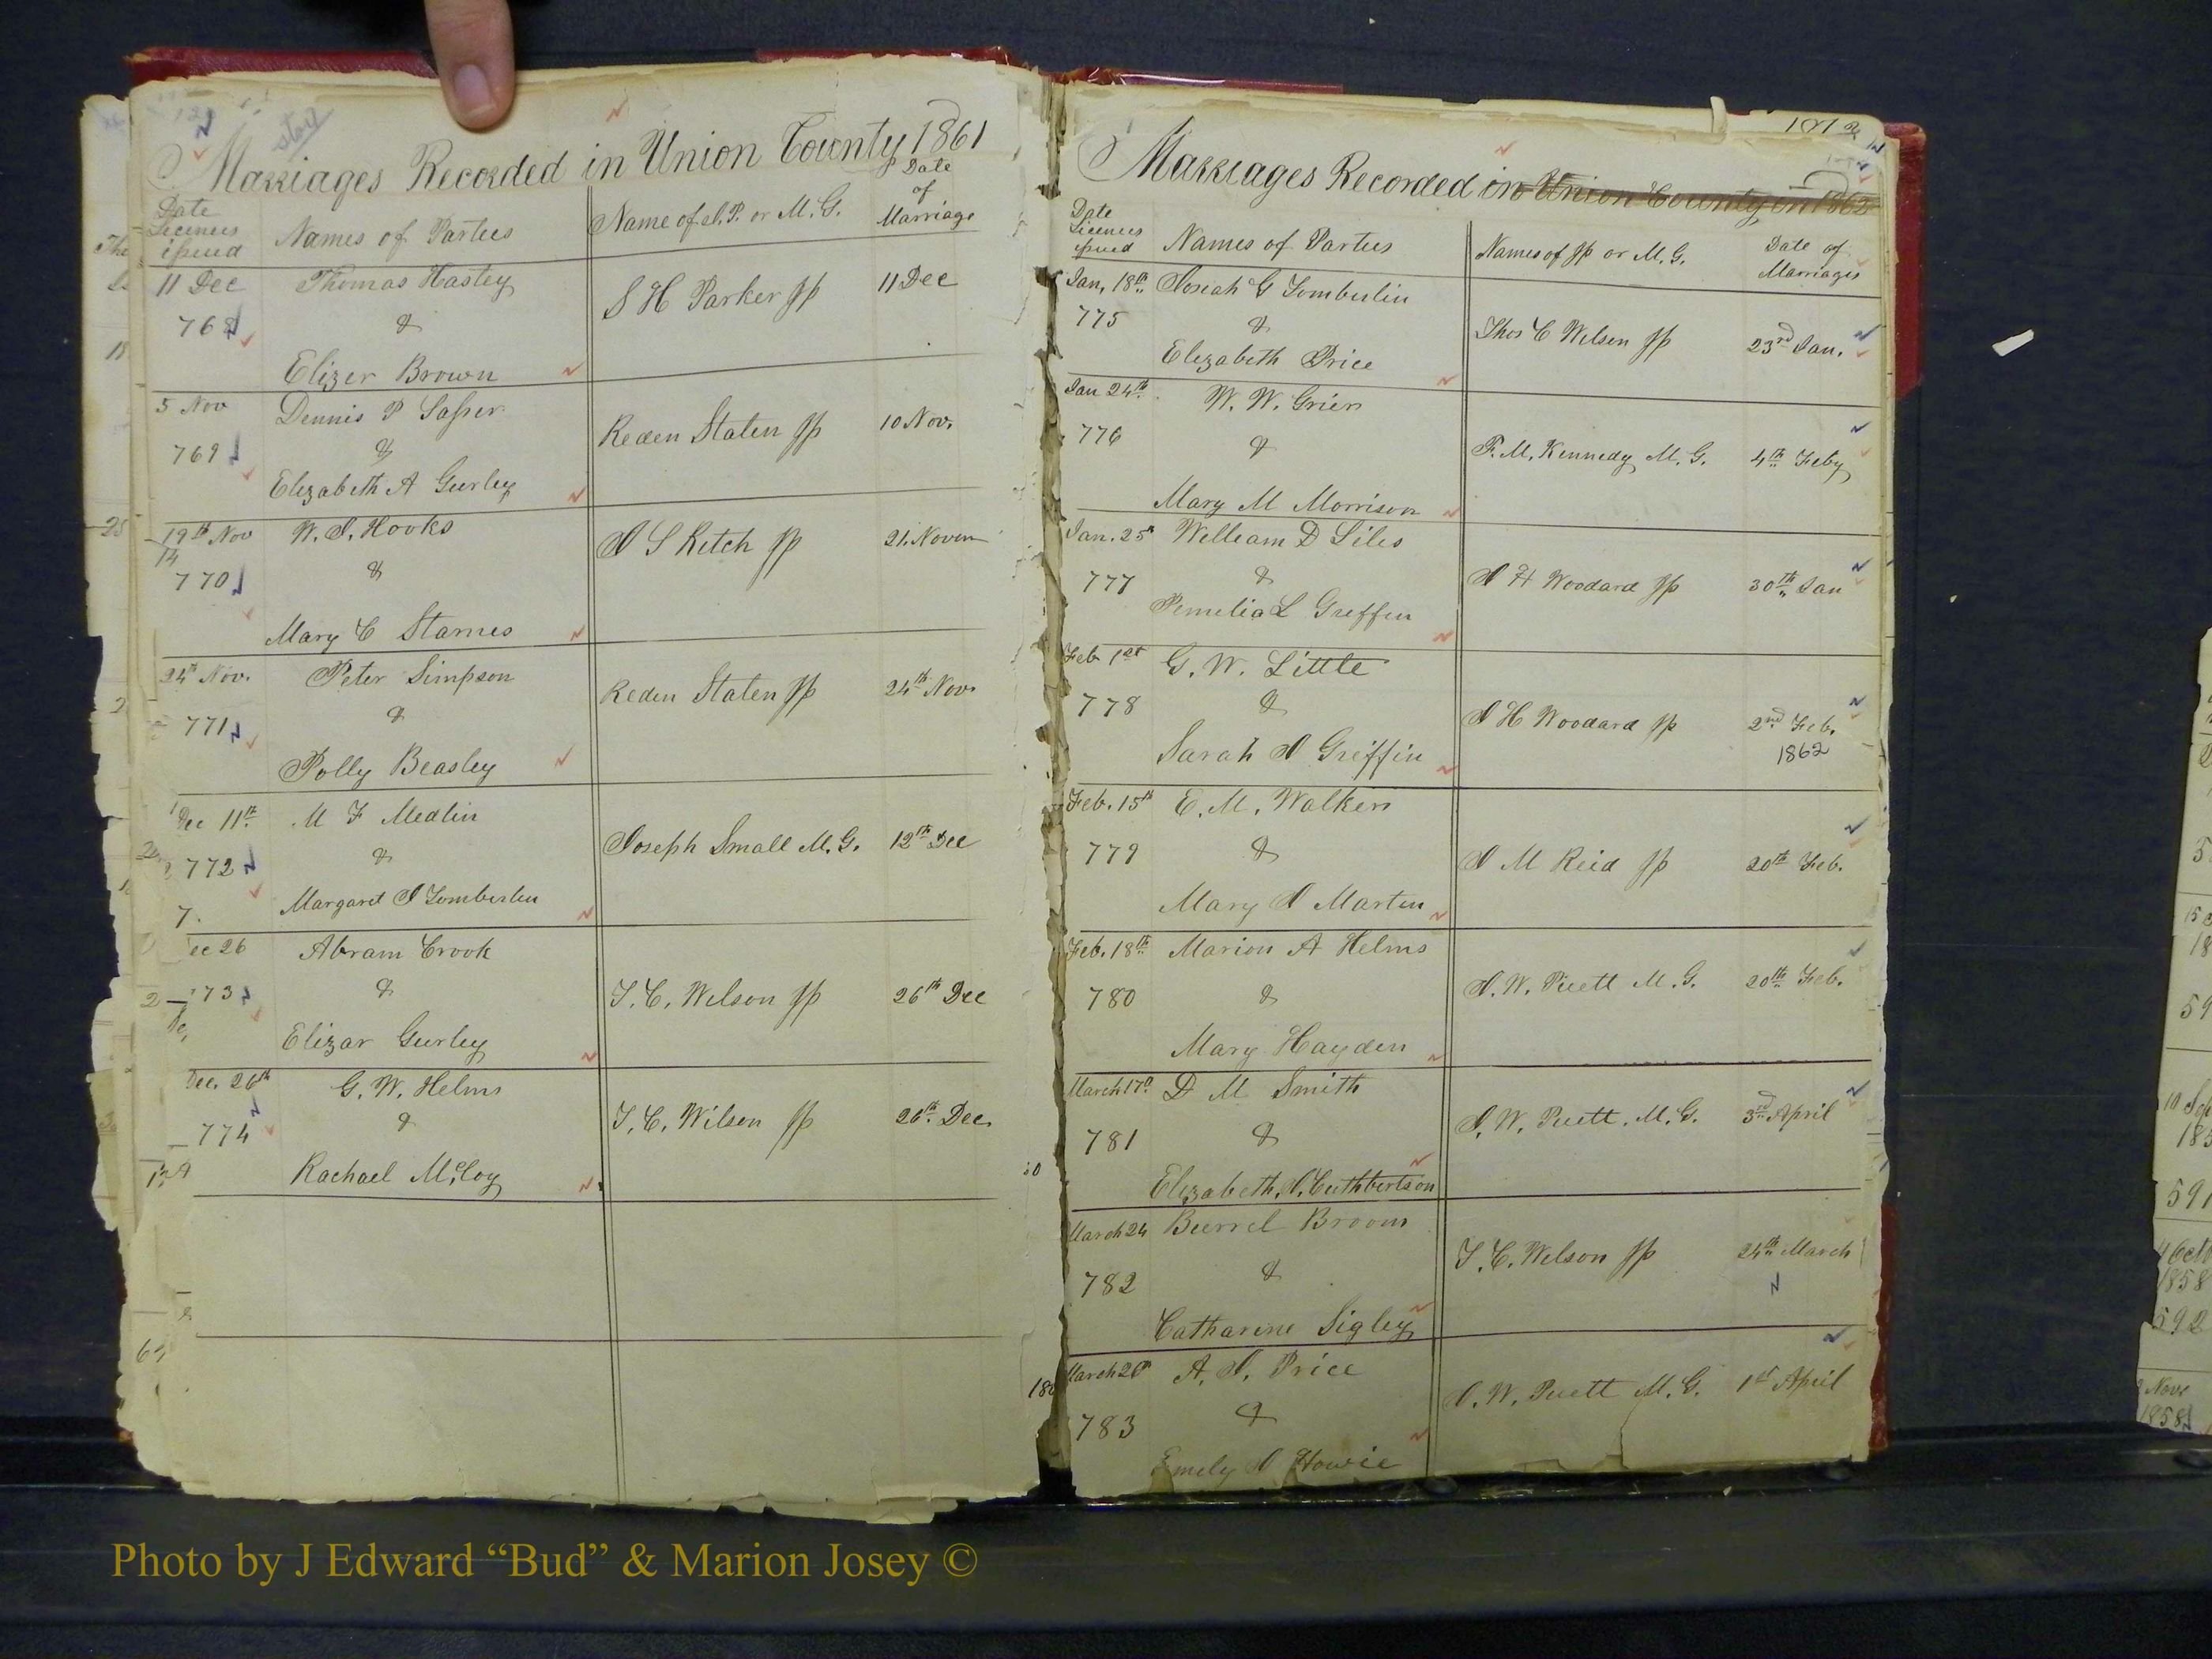 Marriages Recorded in Union County 1861
Date Licenses issued
Names of Parties
Name of J.P. or M.G.
Date of Marriage
11 Dec
768
Thomas Hasley
&
Elizer Brown
S H Parker Jp
11 Dec
5 Nov
769
Dennis P Sasser
&
Elizabeth A Gurley
Reden Staten Jp
10 Nov.
19th Nov
14
770
W. J. Hooks
&
Mary C Starnes
J S Retch Jp
21. Novem
24th Nov.
771
Peter Simpson
&
Polly Beasley
Reden Staten Jp
24th Nov.
Dec 11th
772
M F Medlin
&
Margaret J Tomberlin
Joseph Small M.G.
12th Dec
7.
ec 26
73
Abram Crook
&
Elizar Gurley
T. C. Wilson Jp
26th Dec
Dec. 26th
774
G. W. Helms
&
Rachael McCoy
T. C. Wilson Jp
26th Dec.
Marriages Recorded in Union County in 1862
Date Licenses issued
Names of Parties
Names of Jp or M.G.
Date of Marriages
Jan, 18th
775
Josiah G Tomberlin
&
Elezabeth Price
Thos C Wilson Jp
23rd Jan.
Jan 24th
776
W. W. Grier
&
Mary M Morrison
P. M. Kennedy M. G.
4th Feby
Jan. 25th
777
William D Liles
&
Pemelia L Greffin
J H Woodard Jp
30th Jan
Feb 1st
778
G. W. Little
&
Sarah J Greffin
J H Woodard Jp
2nd Feb.
1862
Feb. 15th
779
E. M. Walker
&
Mary J Marten
J M Reid Jp
20th Feb.
Feb. 18th
780
Marion A Helms
&
Mary Hayden
J. W. Puett M. G.
20th Feb.
March 17th
781
D M Smith
&
Elizabeth. J. Cuthbertson
J. W. Puett. M. G.
3rd April
March 24
782
Burrel Broom
&
Catharine Sigley
T. C. Wilson Jp
24th March
783
A. J. Price
&
Emely J Howie
J. W. Puett M. G.
1st April
Photo by J Edward “Bud” & Marion Josey ©